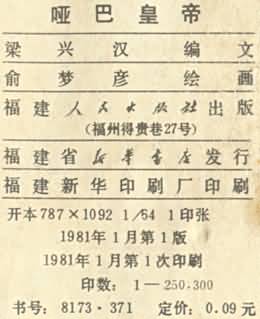 哑巴皇帝
梁兴汉 编文
俞梦彦 绘画
福建人民出版社出版
(福州得贵巷27号)
福建省新华书店发行
福建新华印刷厂印刷
开本787×1092 1/64 1印张
1981年1月第1版
1981年1月第1次印刷
印数：1—250,300
书号：8173·371 定价：0.09元